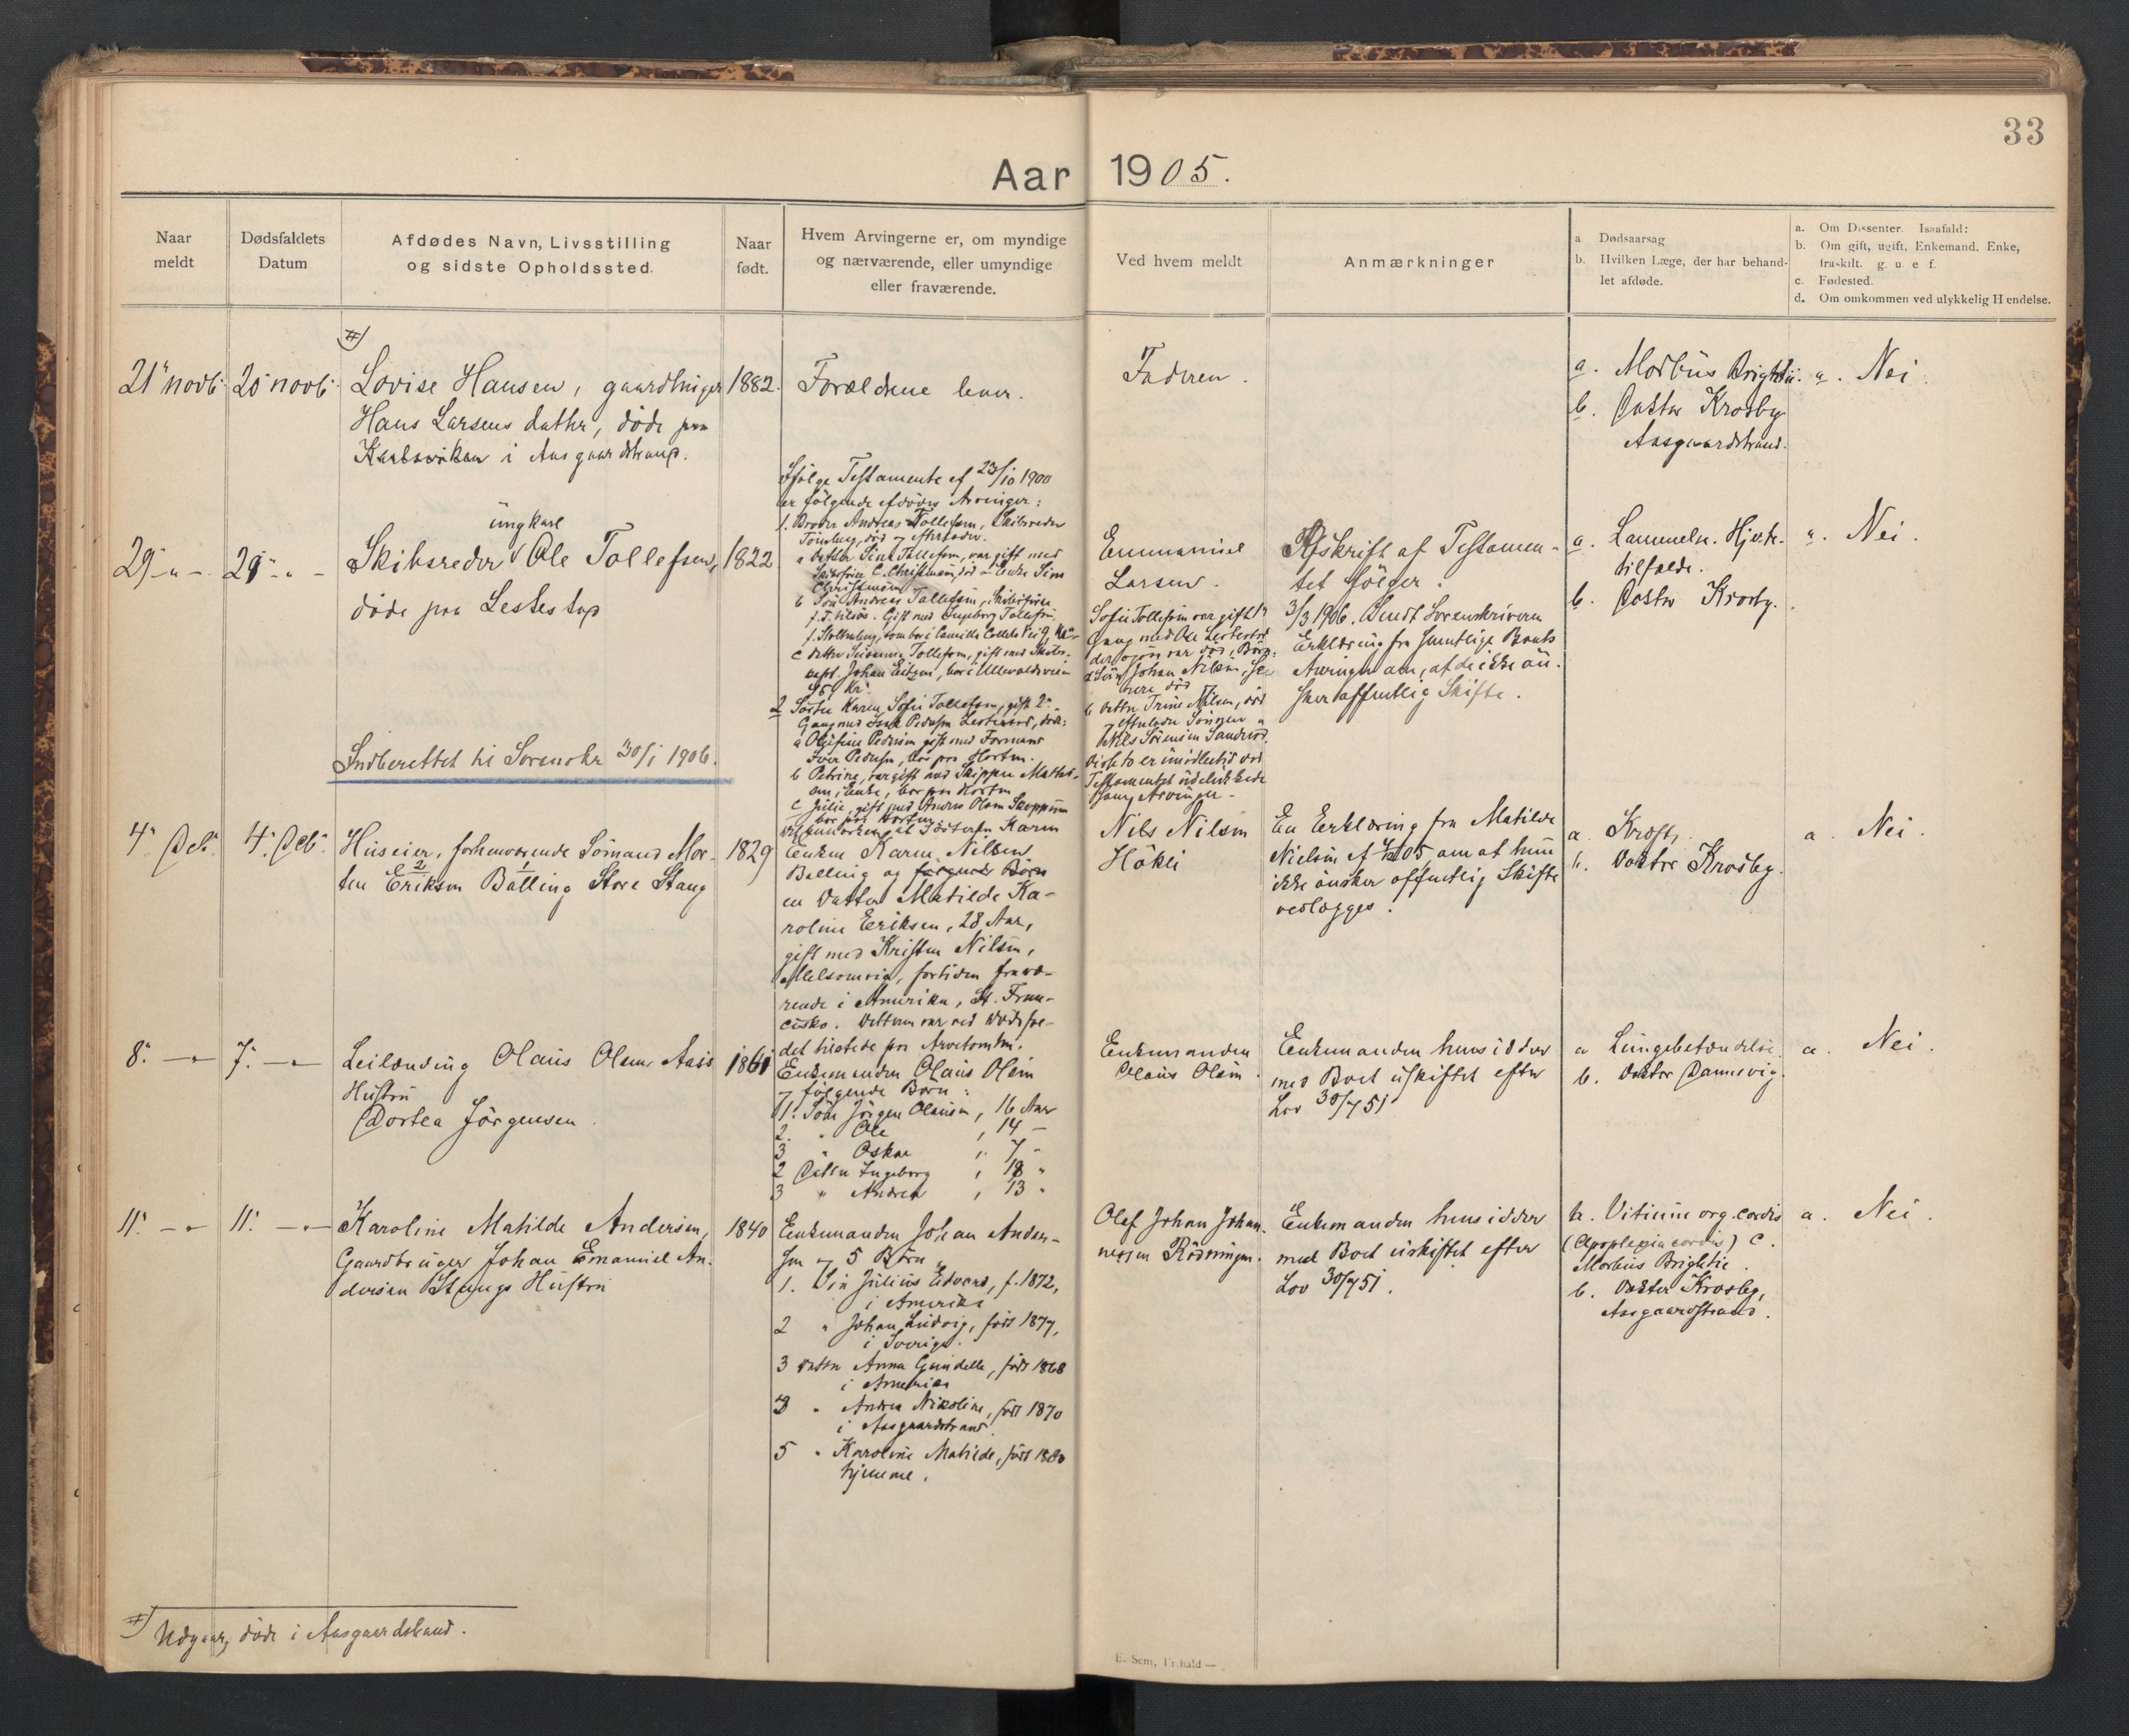 33
Aar 1905.
Naar meldt
Dødsfaldets Datum
Afdødes Navn, Livsstilling og sidste Opholdssted.
Naar født.
Hvem Arvingerne er, om myndige og nærværende, eller umyndige eller fraværende.
Ved hvem meldt
Anmærkninger
a Dødsaarsag
b. Hvilken Læge, der har behandlet afdøde.
a. Om Dissenter. Isaafald:
b. Om gift, ugift, Enkemand, Enke, fraskilt. g. u. e f.
c. Fødested.
d. Om omkommen ved ulykkelig Hendelse.
21 novb. 20 novb.
Lovise Hansen, gaardbruger
Hans Larsens datter, døde paa
i Aasgaardstrand.
1882.
Forældrene lever.
Faderen.
a. Morbus Brightii.
b. Doktor Krosby
Aasgaardstrand.
a. Nei.
29 - " -
ungkarl
Skibsreder Ole Tollefsen,
døde paa Lestestup
Indberettet til Sorenskr 30/1 1906.
1822
Ifølge Testamente af 23/10 1900
er følgende afdødes Arvinger:
1. Broder Andreas Tollefsen, Skibsreder
Tønsberg, død og efterlader
a Datter Sina Tollefsen, var gift med
Skibsfører C. Christensen, død - Enke Sina
Christensen
b Søn Andreas Tollefsen, Skibsfører
Gift med Ingeborg Tollefsen,
f. Stoltenberg, som bor i Camilla Colletts Vei 9 Kr.
c Datter Susanne Tollefsen, gift med Skibs-
Johan Eitzen, bor i Ullevaldsveien
Kr
2 Søster Karen Sofie Tollefsen, gift 2
Gang med Isak Pedersen død:
a Olefine Pedersen gift med Formand
Iver Pedersen, bor paa Horten.
b Petrine, var gift med Skipper Mathis-
sen, Enke, bor paa Horten
c Julie, gift med Anders Olsen Skoppum
bor paa Horten
at Søsteren Karen
Emmanuel
Larsen.
Sofie Tollefsen var gift 1
Gang med Ole
Søn Johan Nilsen, se-
nere død
b Datter Trine Nilsen, død
efterlader Sønnen
Nils Sørensen Sandvod.
Disse to er imidlertid ved
Testamentet udelukkede
som Arvinger -
Afskrift af Testamen-
tet følger.
3/3 1906. Sendt Sorenskriveren
Erklæring fra samtlige Boets
Arvinger om, at de ikke øn-
sker offentlig Skifte.
a. Lammelse. Hjerte-
tilfælde.
b. Doktor Krosby.
a. Nei.
4 Deb. 4. Deb.
Huseier, forhenværende Sømand Mor-
ten Eriksen Balling Store Stang
1829
Enken Karen Nilsen
Balling og
en Datter Matilde Ka-
roline Eriksen, 28 Aar,
gift med Kristen Nilsen,
Melsomvig, fortiden fravæ-
rende i Amerika, St. Fran-
cisko. Datteren var ved Dødsfal-
det tilstede paa Arvetomten.
Nils Nilsen
Håkli
En Erklæring fra Matilde
Nielsen af 05, om at hun
ikke ønsker offentlig Skifte
vedlægges.
a Kræft,
b. Doktor Krosby.
a. Nei.
8. - " 7. - "
Leilænding Olaus Olsens Aass
Hustru
Dortea Jørgensen.
1861
Enkemanden Olaus Olsen
og følgende Børn:
1. Søn Jørgen Olausen, 16 Aar
2. " Ole , 14 -
3 " Oskar , 7 -
2 Datter Ingeborg , 18 "
3 " Andrea , 13 "
Enkemanden
Olaus Olsen.
Enkemanden hensidder
med Boet uskiftet efter
Lov 30/7 51
a Lungebetændelse.
b. Doktor Dannevig.
a. Nei.
11. - " 11. - " -
Karoline Matilde Andersen,
Gaardbruger Johan Emanuel An-
dersen Stangs Hustru
1840
Enkemanden Johan Ander-
sen og 5 Børn
1. Søn Julius Edvard, f. 1872,
i Amerika
2 " Johan Ludvig, født 1877,
i Sverige.
3 Datter Anna Gundelle, født 1868
i Amerika
" Andrea Nikoline, født 1870
i Aasgaardstrand.
5 " Karoline Matilde, født 1880
hjemme.
Olaf Johan Johan-
nessen Rødningen.
Enkemanden hensidder
med Boet uskiftet efter
Lov 30/7 51.
a. Vitium org. cordis
(Apoplexia cordis) c.
Morbus Brightii.
b. Doktor Krosby,
Aasgaardstrand.
a. Nei.
Udgaar, døde i Aasgaardstrand.
E. Sem, Fr.hald —